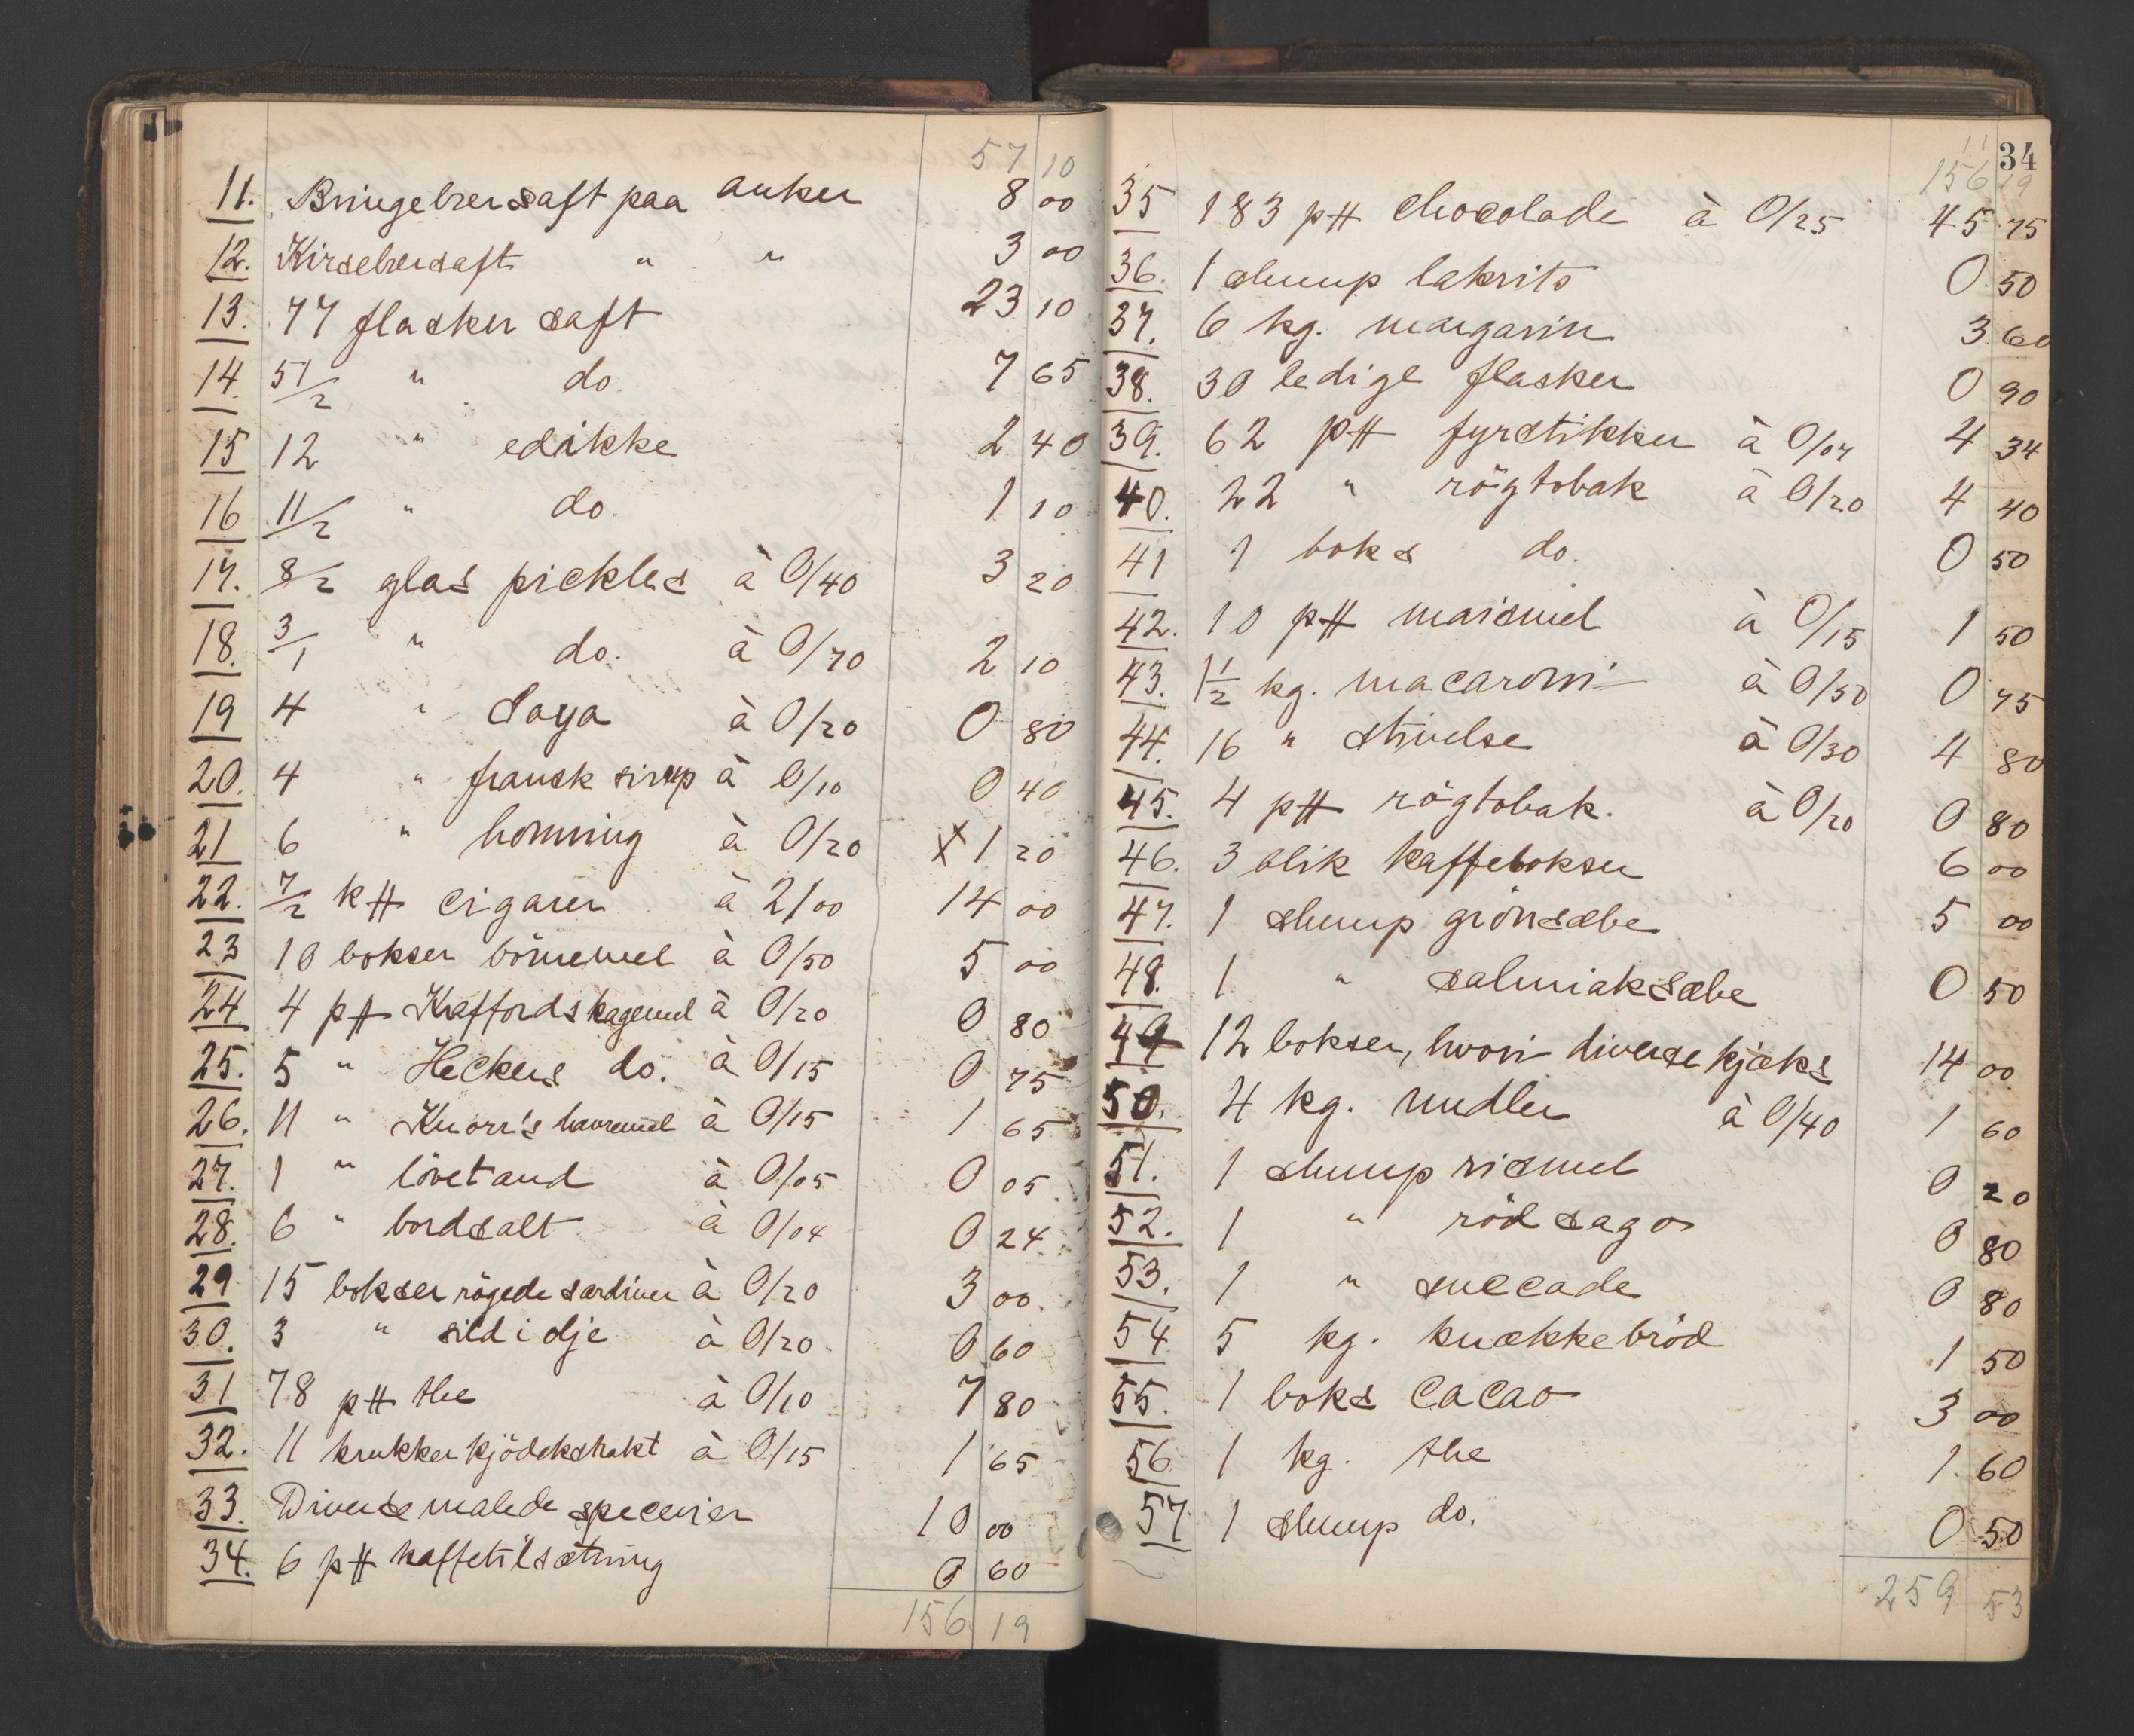 57 10
11. Bringebærsaft paa anker 8 00
12. Kirsebærsaft " " 3 00
13. 77 flasker saft 23 10
14. 51/2 " do. 7 65
15 12 " edikke 2 40
16 11/2 " do. 1 10
17. 8/2 glas pickles à 0/40 3 20
18. 3/1 " do. à 0/70 2 10
19 4 " Soya à 0/20 0 80
20. 4 " fransk sirup à 0/10 0 40
21 6 " honning à 0/20 x 1 20
22. 7/2 k# cigarer à 2/00 14 00
23 10 bokser börnemel à 0/50 5 00
24 4 p# Kaffords kagemel à 0/20 0 80
25. 5 " Heckers do. à 0/15 0 75
26. 11 " Knorr's havremel à 0/15 1 65
27. 1 " lövetand à 0/05 0 05
28. 6 " bordsalt à 0/04 0 24
29 15 bokser rögede sardiner à 0/20 3 00
30. 3 " sild i olje à 0/20 0 60
31 78 p# the à 0/10 7 80
32. 11 krukker kjödekstrakt à 0/15 1 65
33. Diverse malede specerier 10 00
34. 6 p# kaffetilsætning 0 60
156 19
34
11
156 19
35 183 p# chocolade à 0/25 45 75
36. 1 slump lakrits 0 50
37. 6 kg. margarin 3 60
38. 30 ledige flasker 0 90
39. 62 p# fyrstikker à 0/07 4 34
40. 22 " rögtobak à 0/20 4 40
41 1 boks do. 0 50
42. 10 p# maismel à 0/15 1 50
43. 1 1/2 kg. macaroni à 0/50 0 75
44. 16 " stivelse à 0/30 4 80
45. 4 p# rögtobak. à 0/20 0 80
46. 3 blik kaffebokser 6 00
47. 1 slump grönsæbe 5 00
48. 1 " salmiaksæbe 0 50
49 12 bokser, hvori diverse kjæks 14 00
50. 4 kg. nudler à 0/40 1 60
51. 1 slump rismel 0 20
52. 1 " röd sago 0 80
53. 1 " succade 0 80
54 5 kg. knækkebröd 1 50
55. 1 boks cacao 3 00
56 1 kg. the 1 60
57 1 slump do. 0 50
259 53